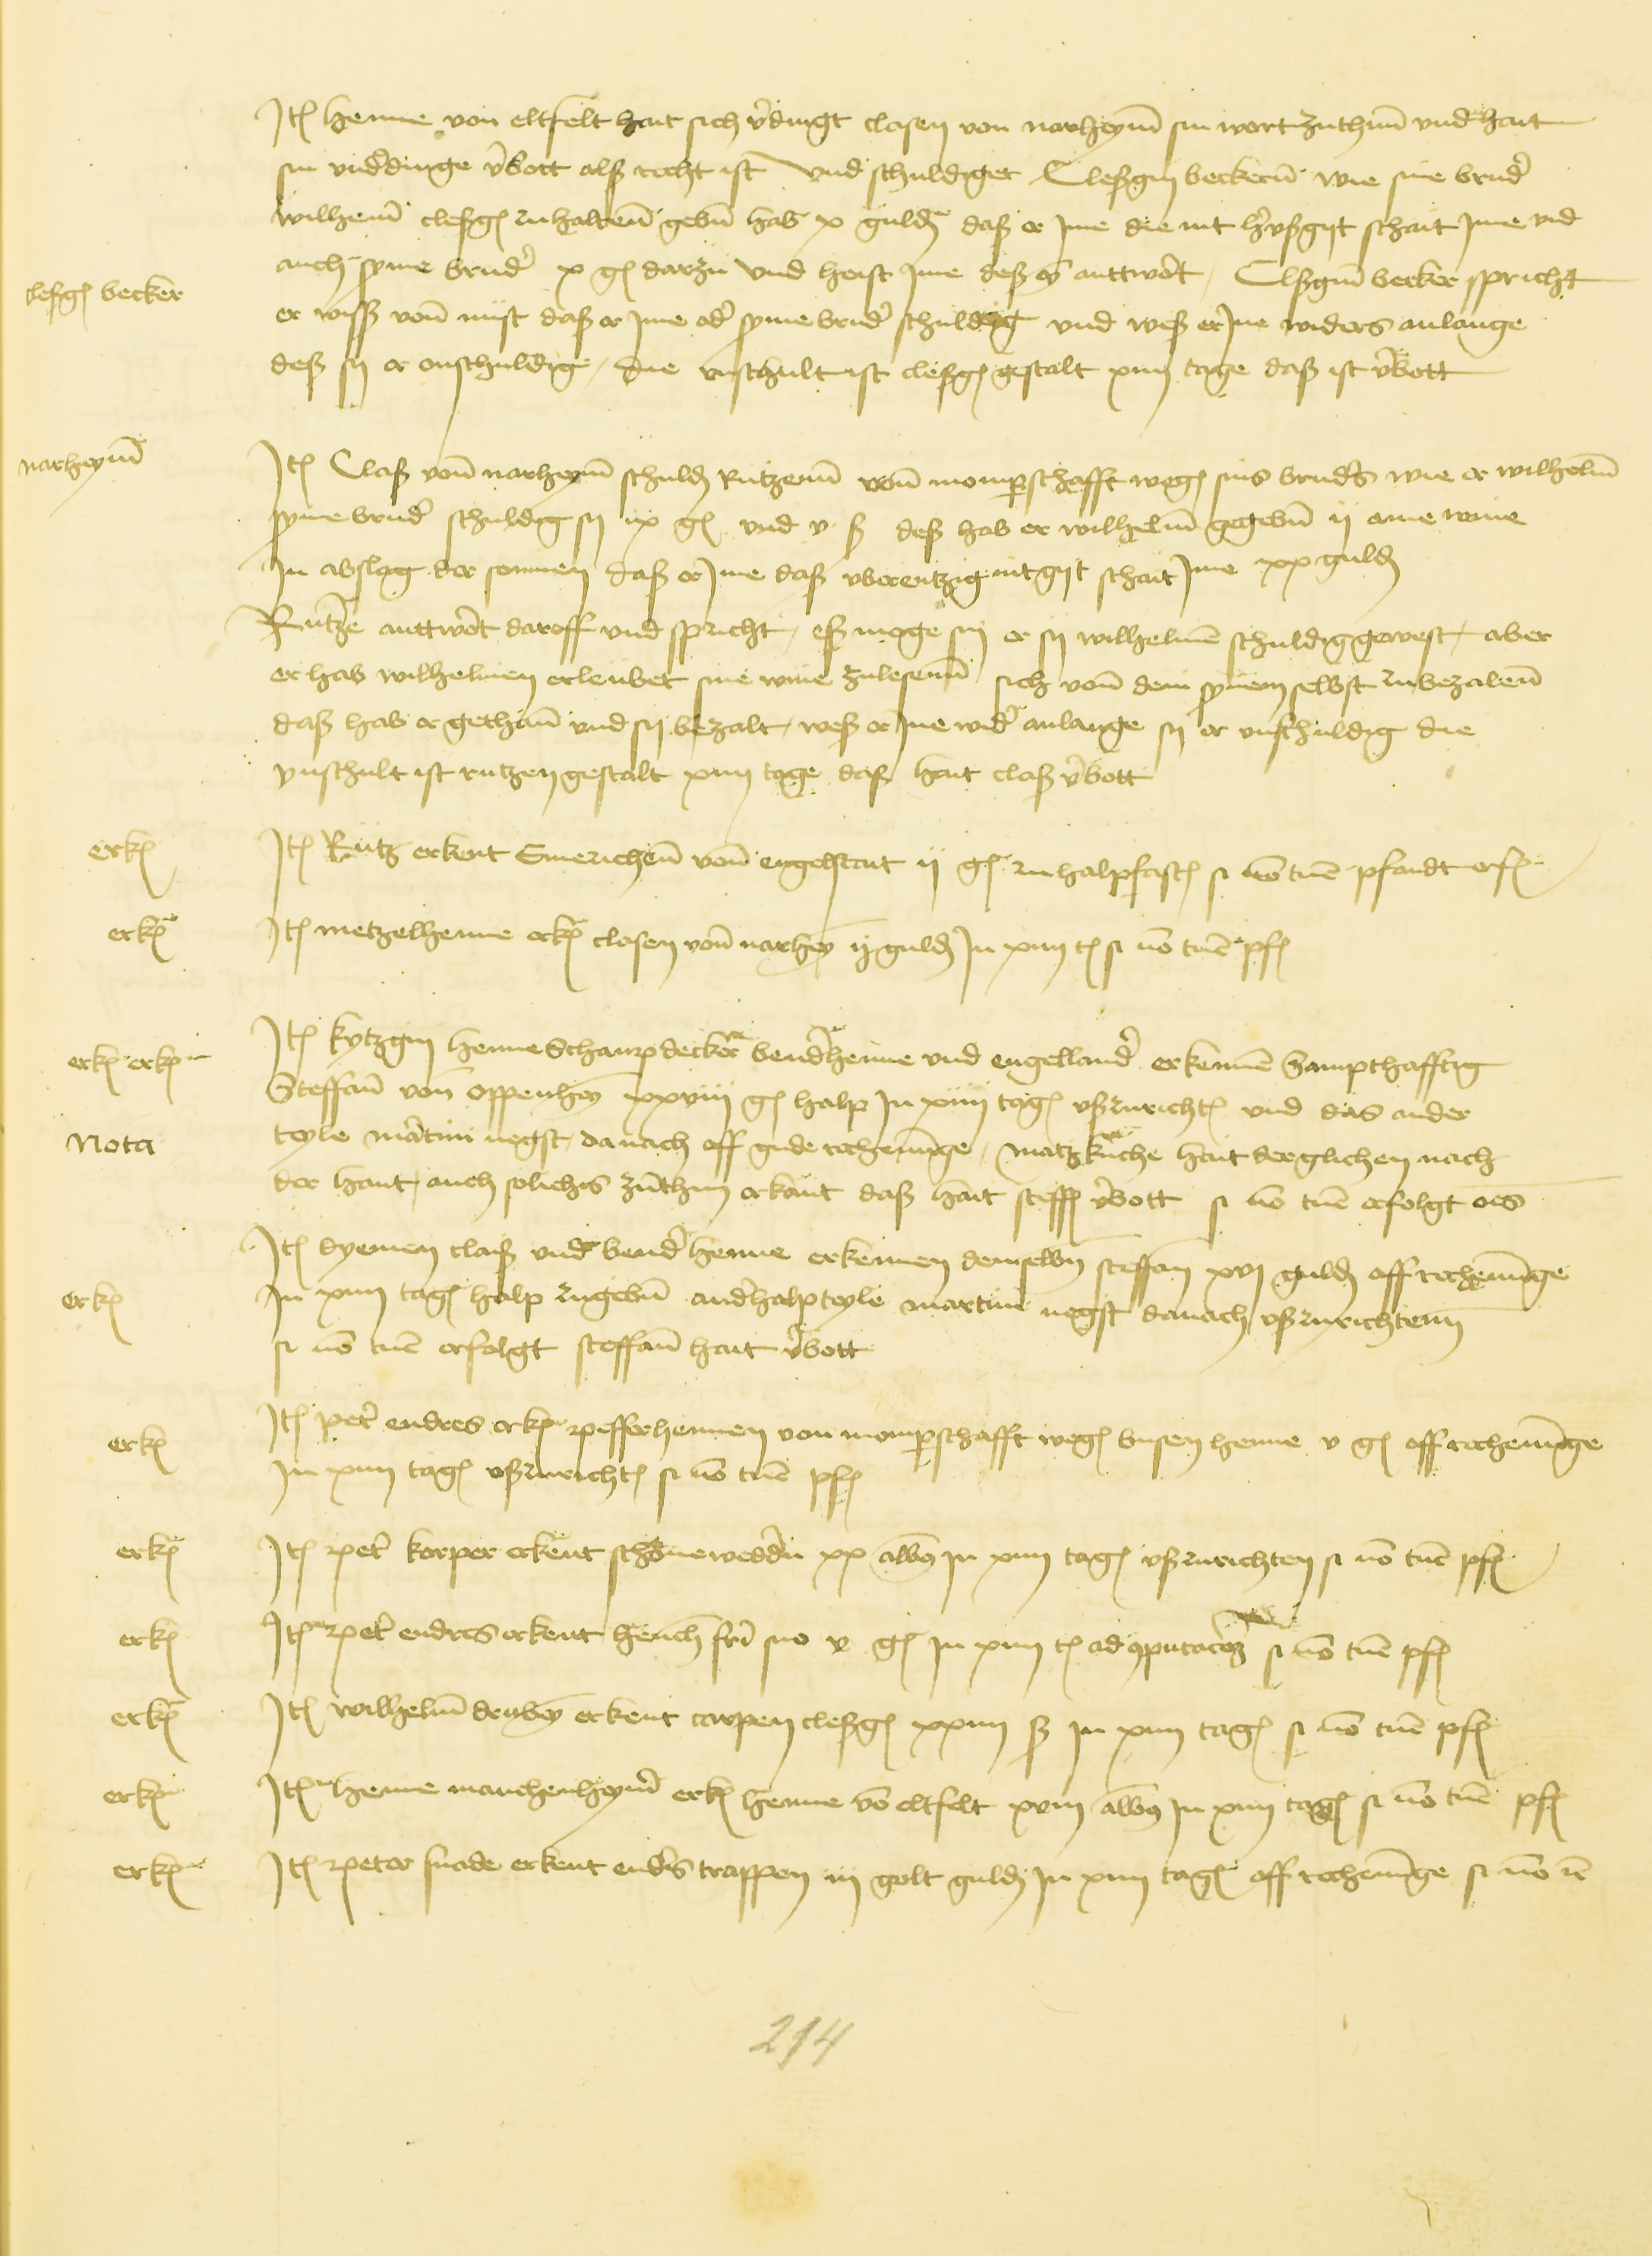 Jt(em) henne von eltfelt hait sich v(er)dingt clasen von narheym sin wort zuthun vnd hait
sin vnd(er)dinge v(er)bott alß recht ist Vnd schuldiget Cleßgin beckern wie sine brud(er)
wilhem cleßg(in) zuhalten geb(e)n hab x guld(en) daß er jme die nit h(er)vßgijt schait jme vnd
clesg(in) becker
auch syme brud(er) x g(ulden) darzu Vnd heist jme deß ey(n) anttw(or)t / Cleßgin becker spricht
er wiss von nust daß er jme od(er) syme brud(er) schuldig vnd weß er jne widers anlange
deß sij er onschuldig / die vnschult ist cleßg(in) gestalt xiiij tage daß ist v(er)bott
narheym
Jt(em) Claß von narheym schuld(iget) Rutzen von momp(ar)schafft weg(en) sins brud(er)s wie er wilhelm
syme brud(er) schuldig sij ix g(ulden) vnd v ß deß hab er wilhelm gegeb(e)n ij ame wins
jn abslag der sommen daß er jme daß uberentzig nit gijt schait jme xx guld(en)
Rutze anttw(or)t daroff vnd spricht / eß moge sin er sij wilhelmen schuldig gewest / aber
er hab wilhelmen erleubet sine wine zulesenn sich von dem synem selbst zubezalen
daß hab er gethan vnd sij bezalt / weß er jne wid(er) anlange sij er vnschuldig die
vnschult ist rutzen gestalt xiiij tage daß hait claß v(er)bott
erk(ant)
Jt(em) Rutz erkent Emerichen von engelstait ij g(ulden) zu halpfast(en) si no(n) tu(n)c pfandt erf(olgt)
erk(ant)
Jt(em) metzelhenne erk(ent) clasen von narhey(m) ij guld(en) jn xiiij t(agen) si no(n) tu(n)c pf(andt)
erk(ant) erk(ant)
Jt(em) kytzgin henne Scharpdecker bend(er)henne vnd engelland(er) erkenne(n) Sampthafftig
Steffan von Oppenhey(m) xxviij g(ulden) halp jn xiiij tag(en) vßzuricht(en) vnd das ander
Nota
teyle martini negst danach off gude rechenu(n)ge / matzkuche hait derglichen nach
der hant auch solichs zuthun erkant daß hait steff(an) v(er)bott si no(n) tu(n)c erfolgt o(mn)es
Jt(em) dyemen claiß vnd bend(er)henne erkennen demselbe(n) steffan xvj guld(en) off rechenu(n)ge
erk(ant)
jn xiiij tag(en) halp zugeb(e)n and(er)halpteyle martini negst danach vßzurichten
si no(n) tu(n)c erfolgt steffan hait v(er)bott
erk(ant)
Jt(em) pet(er) endres erk(ent) pefferhennen von momp(ar)schafft weg(en) busen henne v g(ulden) off rechenu(n)ge
jn xiiij tag(en) vßzuricht(en) si no(n) tu(n)c pf(andt)
erk(ant)
Jt(em) pet(er) korper erkent schonewedd(er)n xx alb(us) jn xiiij tag(en) vßzurichten si no(n) tu(n)c pf(andt)
erk(ant)
Jt(em) pet(er) endres erkent henrich fr(atr)i suo v g(ulden) jn xiiij t(agen) ad co(m)putac(i)o(n)em si no(n) tu(n)c pf(andt)
erk(ant)
Jt(em) wilhelm drubey(n) erkent carpen cleßg(in) xxiiij ß jn xiiij tag(en) si no(n) tu(n)c pf(andt)
erk(ant)
Jt(em) henne mauchenheym(er) erk(ent) henne vo(n) eltfelt xviij alb(us) jn xiiij tag(en) si no(n) tu(n)c pf(andt)
erk(ant)
Jt(em) peter snade erkent endr(e)s trappen iij golt guld(en) jn xiiij tag(en) off rechenu(n)ge si no(n) r(e)c
214